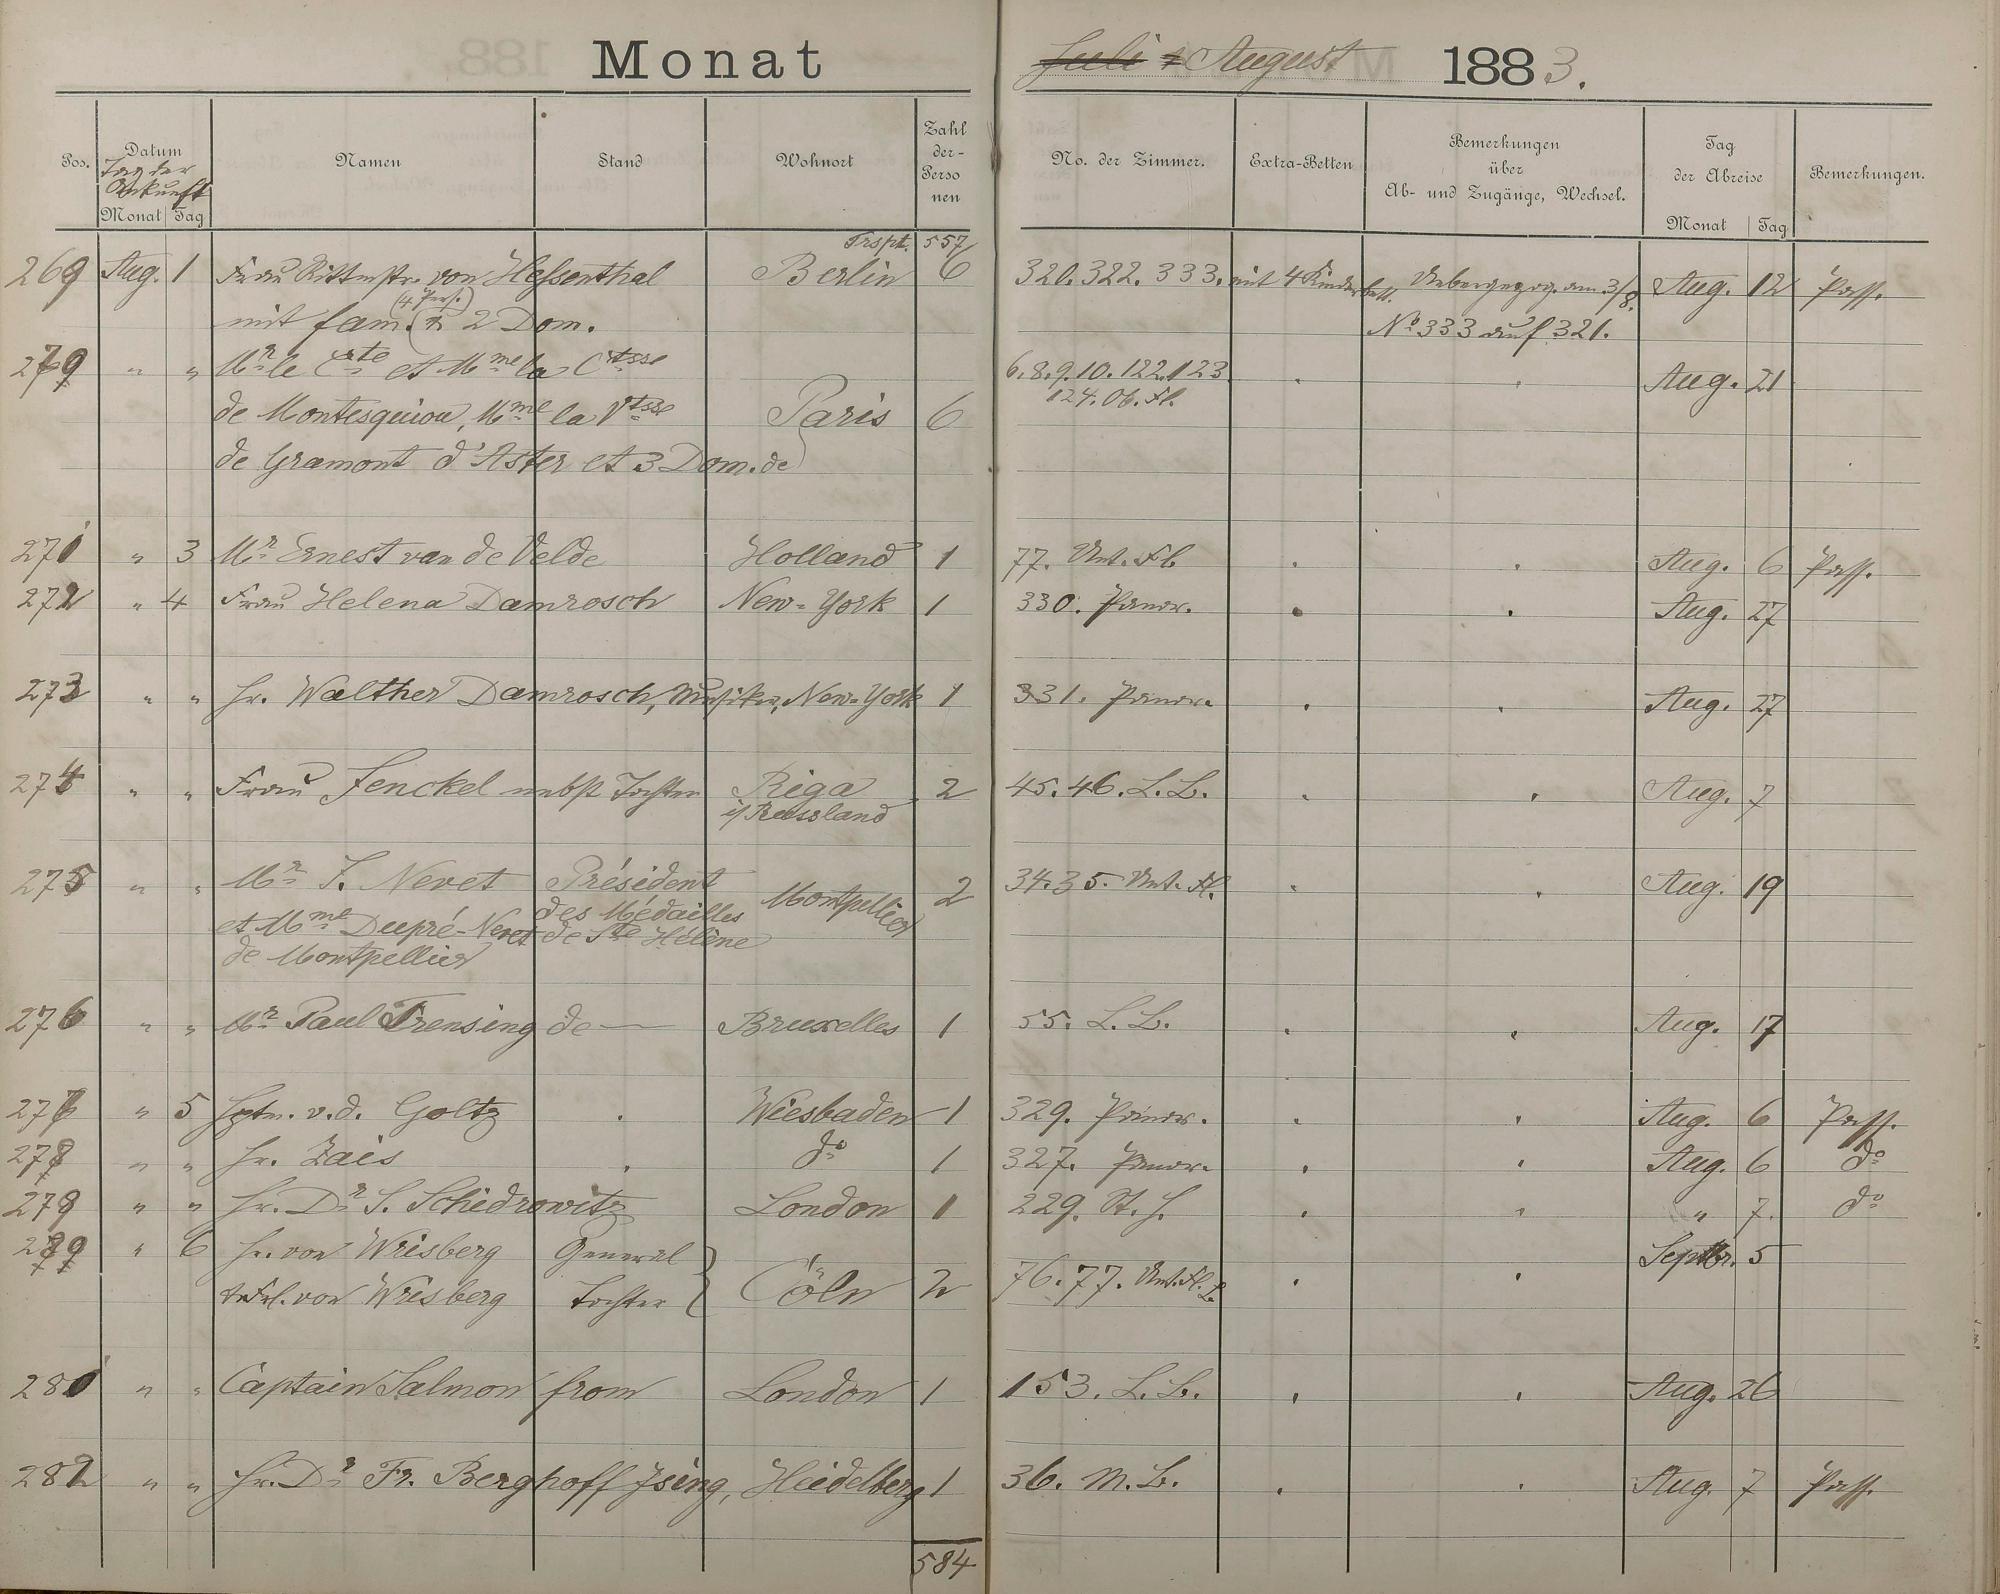 Monat Juli & August 1883.
Pos. Datum Namen Stand Wohnort Zahl der Personen No. der Zimmer. Extra-Betten Bemerkungen über Ab- und Zugänge, Wechsel. Tag der Abreise Bemerkungen.
Tag der Ankunft
Monat Tag Monat Tag
Trspt. 557
269 Aug. 1 Frau Rittmstr. von Hessenthal Berlin 6 320. 322. 333. mit 4 Kinderbett. Uebergezog. am 3/8. Aug. 12 Pass.
mit fam. (4 Pers.) & 2 Dom. No 333 auf 321.
279 " " Mr le Cte et Mme la Ctsse 6. 8. 9. 10. 122. 123 . . Aug. 21
124. Ob. Fl.
de Montesquiou, Mme la Vtsse Paris 6
de Gramont d'Aster et 3 Dom. de
271 " 3 Mr Ernest van de Velde Holland 1 77. Unt. Fl. . . Aug. 6 Pass.
272 " 4 Frau Helena Damrosch New-York 1 330. Panor. . . Aug. 27
273 " " Hr. Walther Damrosch, Musiker, New-York 1 331. Panor. . . Aug. 27
274 " " Frau Jenckel nebst Tochter Riga 2 45. 46. L. B. . . Aug. 7
i/ Russland
275 " " Mr J. Nevet Président Montpellier 2 34. 35. Unt. Fl. . . Aug. 19
et Mme Dupré-Nevet des Médailles
de Montpellier de Ste Hélène
276 " " Mr Paul Trensing de — Bruxelles 1 55. L. B. . . Aug. 17
277 " 5 Hptm. v. d. Goltz . Wiesbaden 1 329. Panor. . . Aug. 6 Pass.
278 " " Hr. Zais . do 1 327. Panor. . . Aug. 6 do
279 " " Hr. Dr S. Schidrowitz London 1 229. St. H. . . " 7. do
279 " 6 Hr. von Wrisberg General Septbr. 5
& Frl. von Wrisberg Tochter } Cöln 2 76. 77. Unt. Fl. . .
281 " " Captain Salmon from London 1 153. L. B. . . Aug. 26
282 " " Hr. Dr Fr. Berghoff Ising, Heidelberg 1 36. M. B. . . Aug. 7 Pass.
584